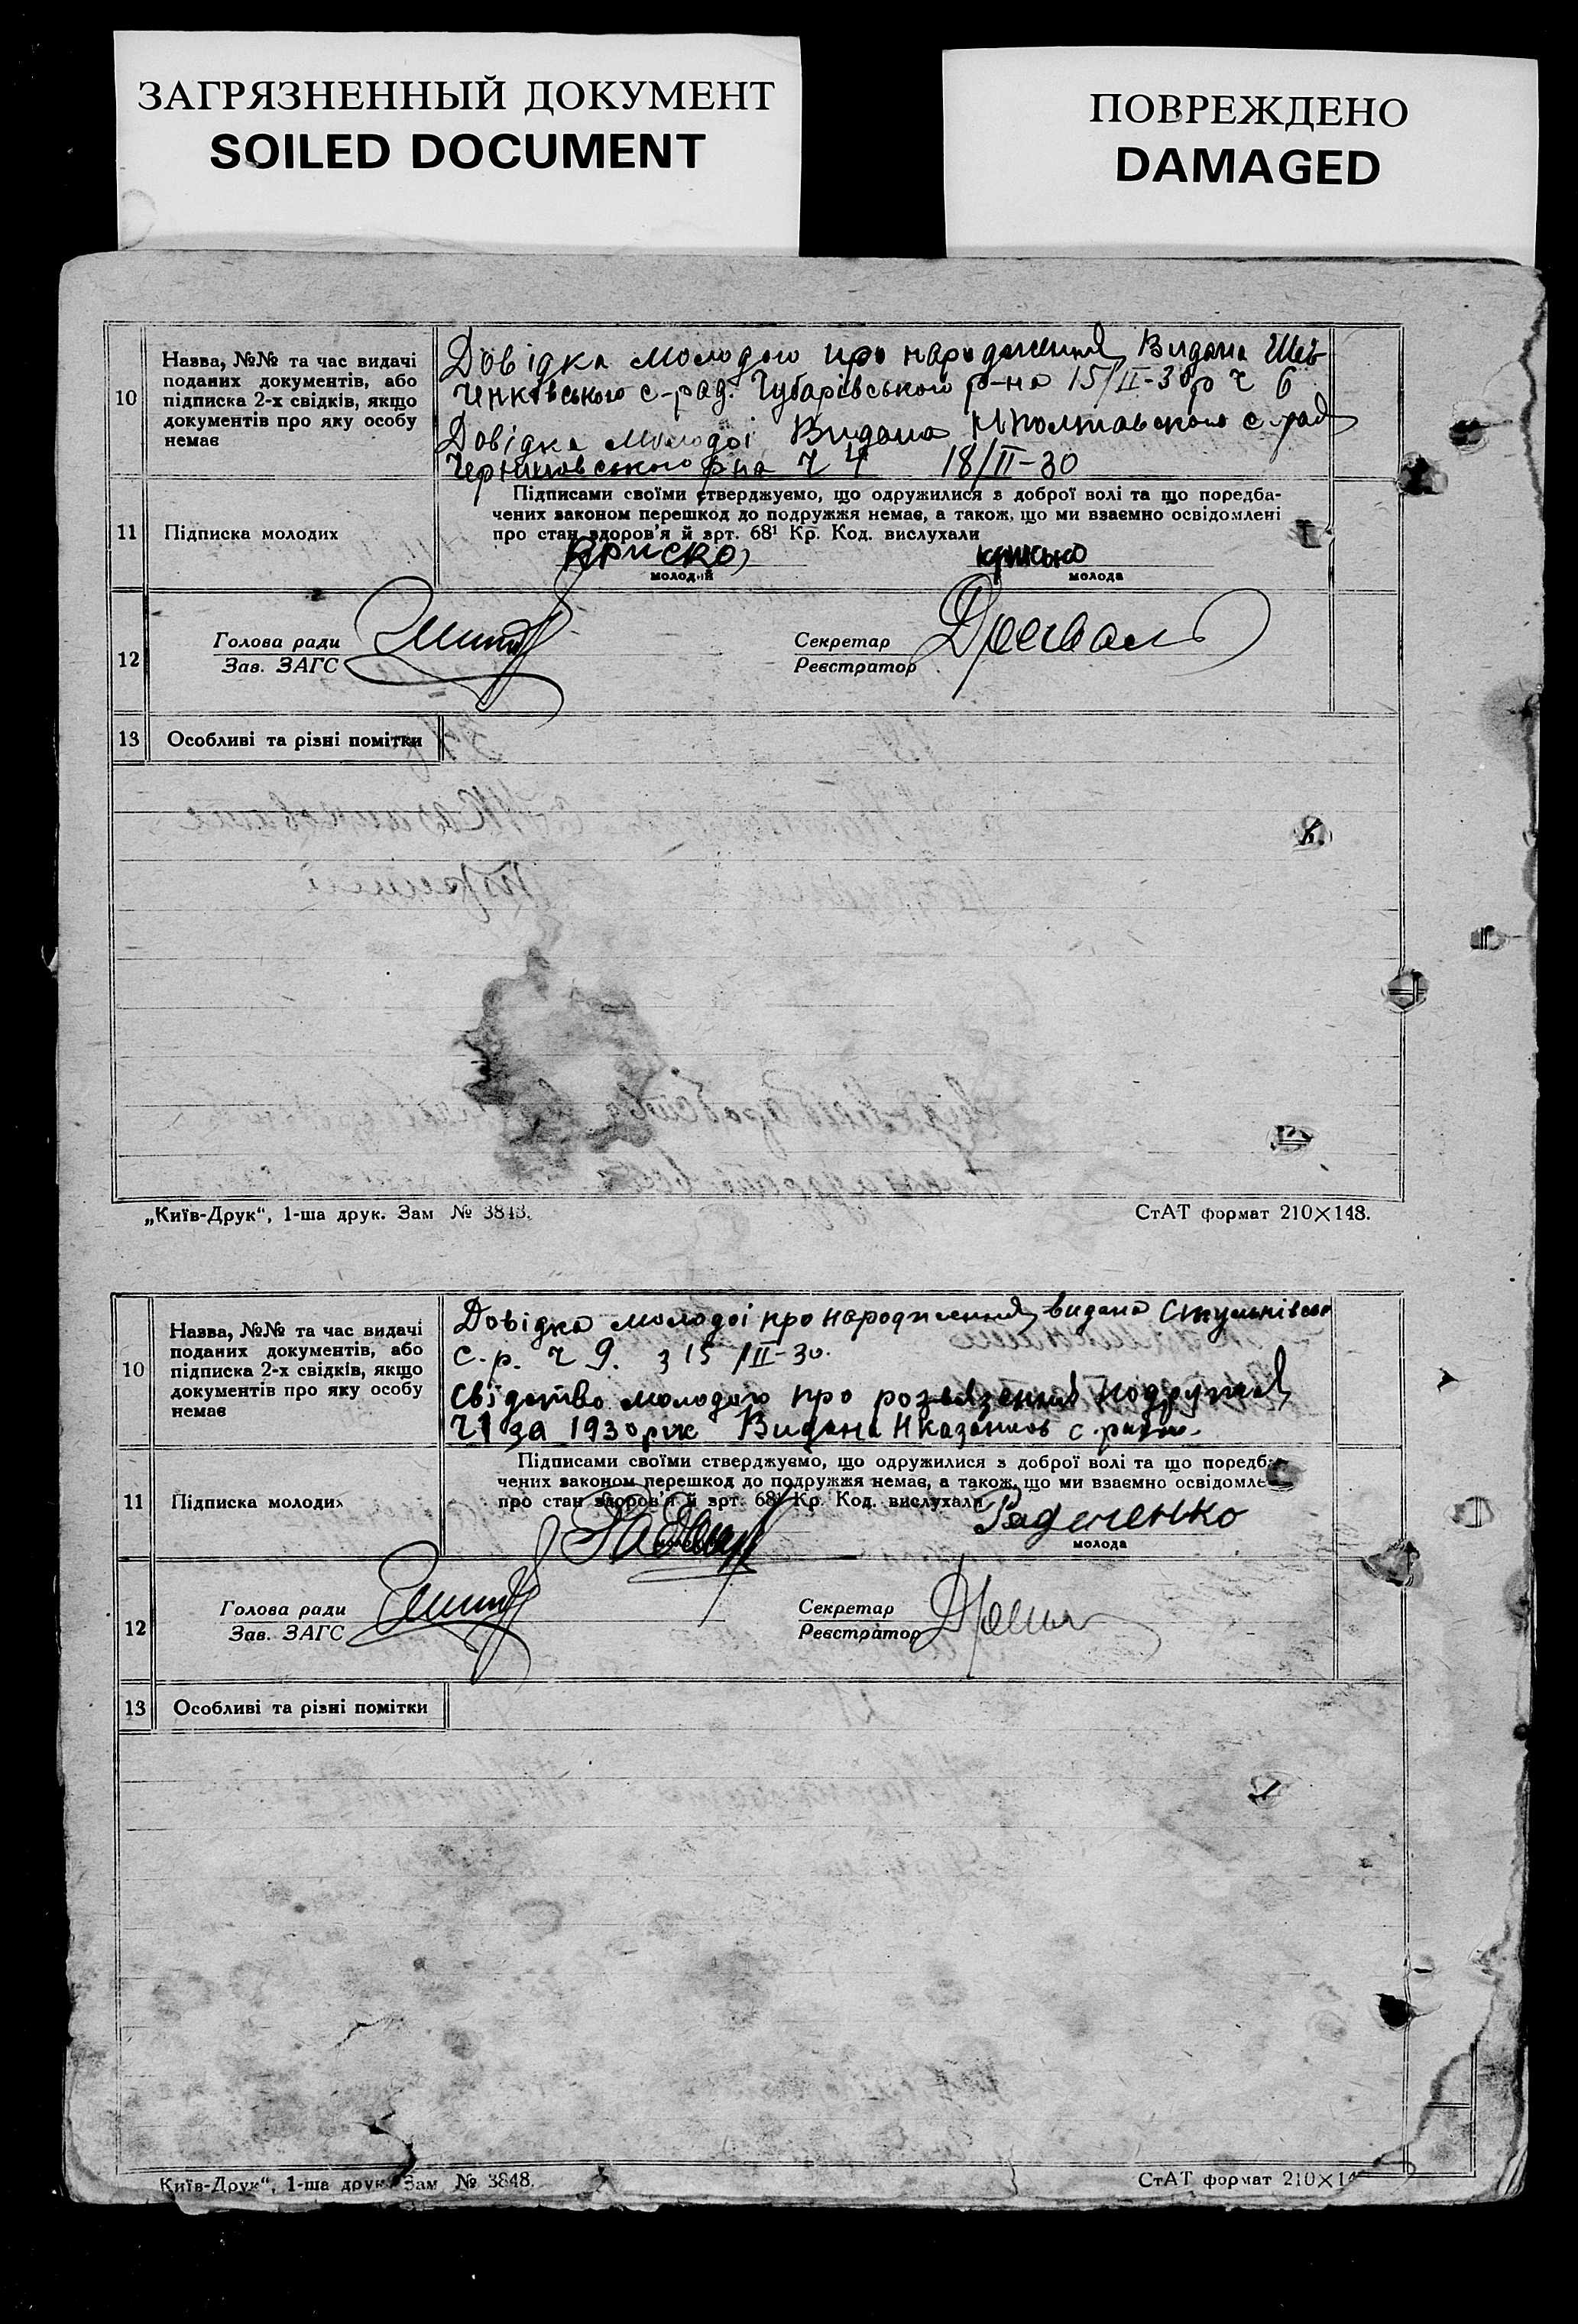 ЗАГРЯЗНЕННЫЙ ДОКУМЕНТ
SOILED DOCUMENT
ПОВРЕЖДЕНО
DAMAGED
10
Назва, №№ та час видачі
поданих документів, або
підписка 2-х свідків, якщо
документів про яку особу
немає
Довідка молодого про народження Видана Шев-
ченківського с-рад. Чубарівського р-на 15/II-30р ч 6
Довідка молодої Видана с-рад
р-на ч 4 18/II-30
11
Підписка молодих
Підписами своїми стверджуємо, що одружилися з доброї волі та що поредба-
чених законом перешкод до подружжя немає, а також, що ми взаємно освідомлені
про стан здоров'я й арт. 68¹ Кр. Код. вислухали
Криско
молодий
молода
12
Голова ради
Зав. ЗАГС
Секретар
Реєстратор
13
Особливі та різні помітки
„Київ-Друк“, 1-ша друк. Зам № 3848.
СтАТ формат 210×148.
10
Назва, №№ та час видачі
поданих документів, або
підписка 2-х свідків, якщо
документів про яку особу
немає
Довідка молодої про народження видана
с.р. ч 9. з 15/II-30.
Свідоцтво молодого про розвязення подружжя
ч 1 за 1930 рік Видана
11
Підписка молодих
Підписами своїми стверджуємо, що одружилися з доброї волі та що поредба-
чених законом перешкод до подружжя немає, а також, що ми взаємно освідомле
про стан здоров'я й арт. 68¹ Кр. Код. вислухали
Радченко
молода
12
Голова ради
Зав. ЗАГС
Секретар
Реєстратор
13
Особливі та різні помітки
Київ-Друк“, 1-ша друк. Зам № 3848.
СтАТ формат 210×14